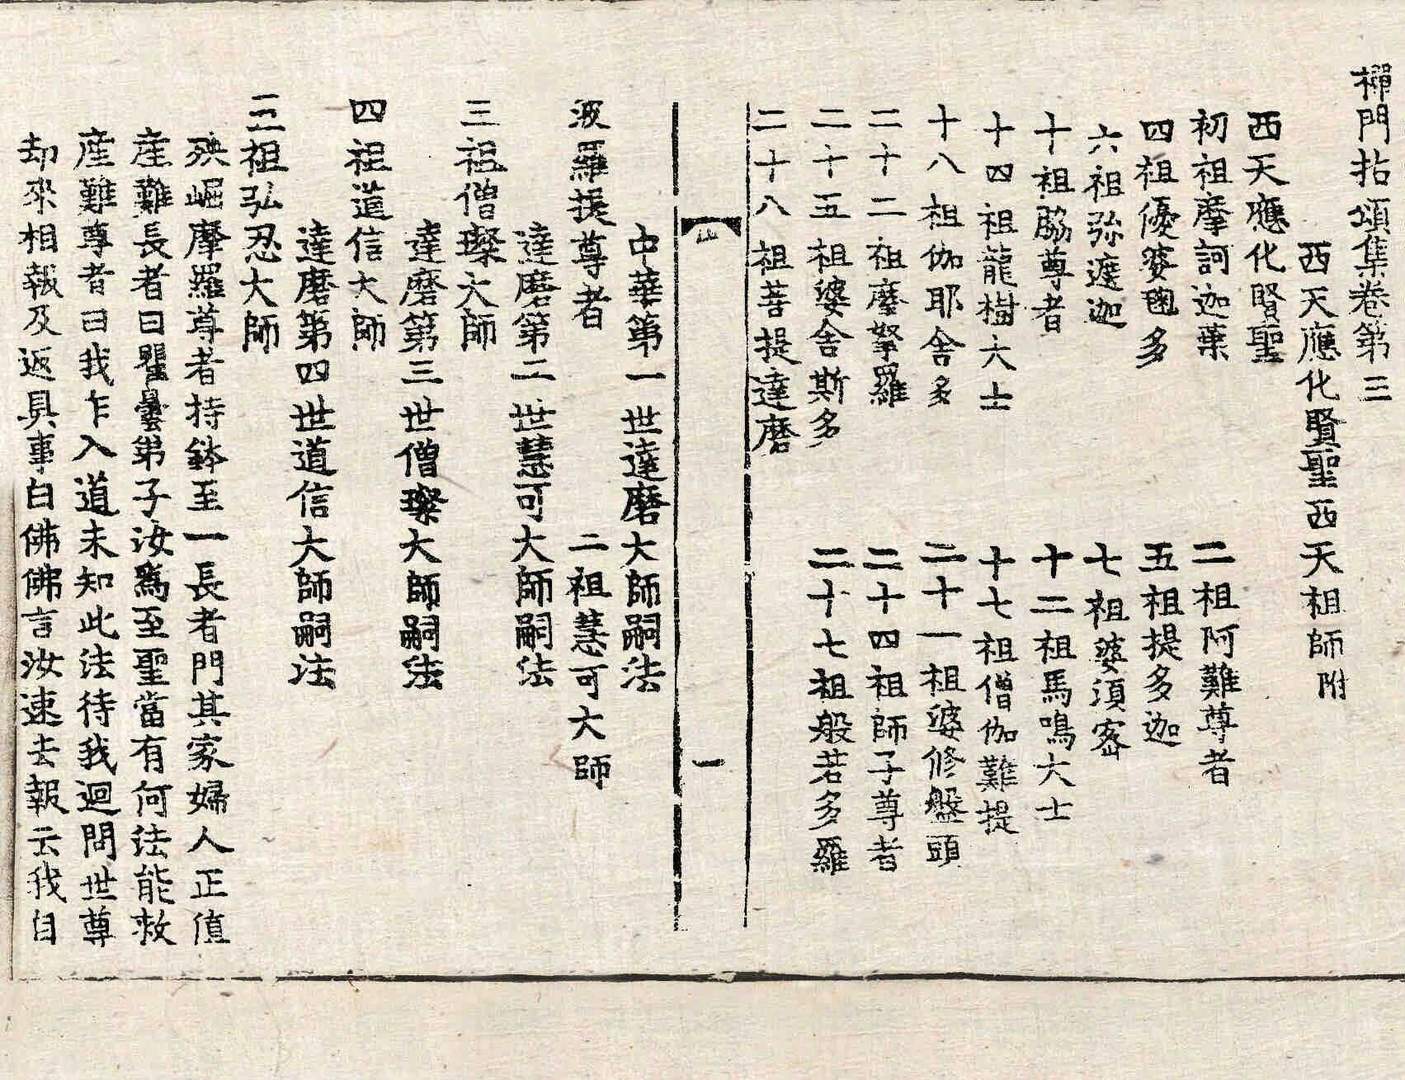 禪門拈頌集卷第三
西天應化賢聖西天祖師附
西天應化賢聖
初祖摩訶迦葉　二祖阿難尊者
四祖優婆毱多　五祖提多迦
六祖弥遮迦　七祖婆須密
十祖脇尊者　十二祖馬鳴大士
十四祖龍樹大士　十七祖僧伽難提
十八祖伽耶舍多　二十一祖婆修盤頭
二十二祖摩拏羅　二十四祖師子尊者
二十五祖婆舍斯多　二十七祖般若多羅
二十八祖菩提達磨
一
中華第一世達磨大師嗣法
波羅提尊者　二祖慧可大師
達磨第二世慧可大師嗣法
三祖僧璨大師
達磨第三世僧璨大師嗣法
四祖道信大師
達磨第四世道信大師嗣法
三祖弘忍大師
殃崛摩羅尊者持鉢至一長者門其家婦人正值
產難長者曰瞿曇弟子汝爲至聖當有何法能救
產難尊者曰我乍入道未知此法待我迴問世尊
却來相報及返具事白佛佛言汝速去報云我自